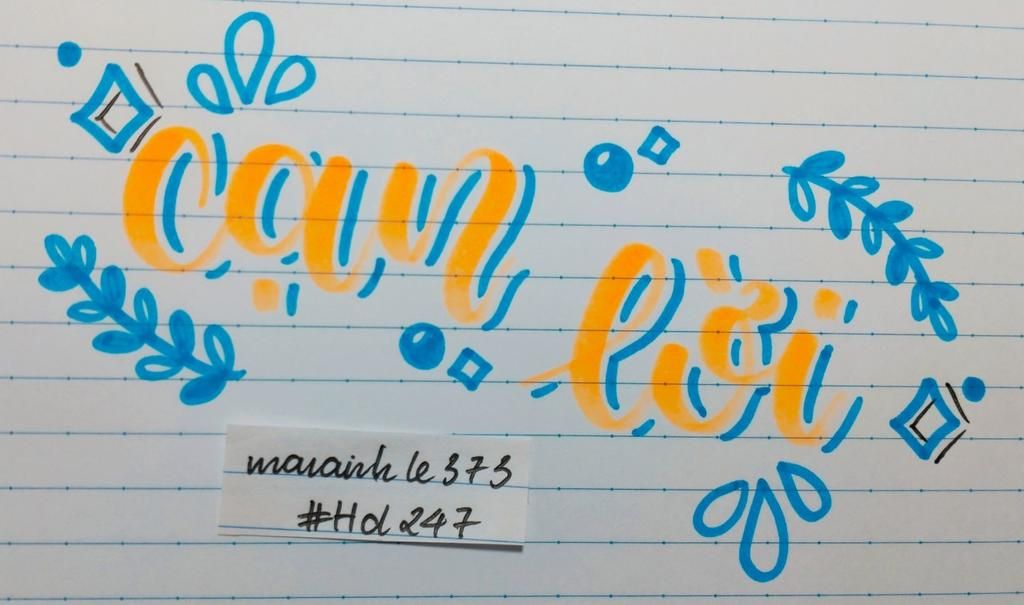 cạn
lời
maiainh le 373
#Hd 247